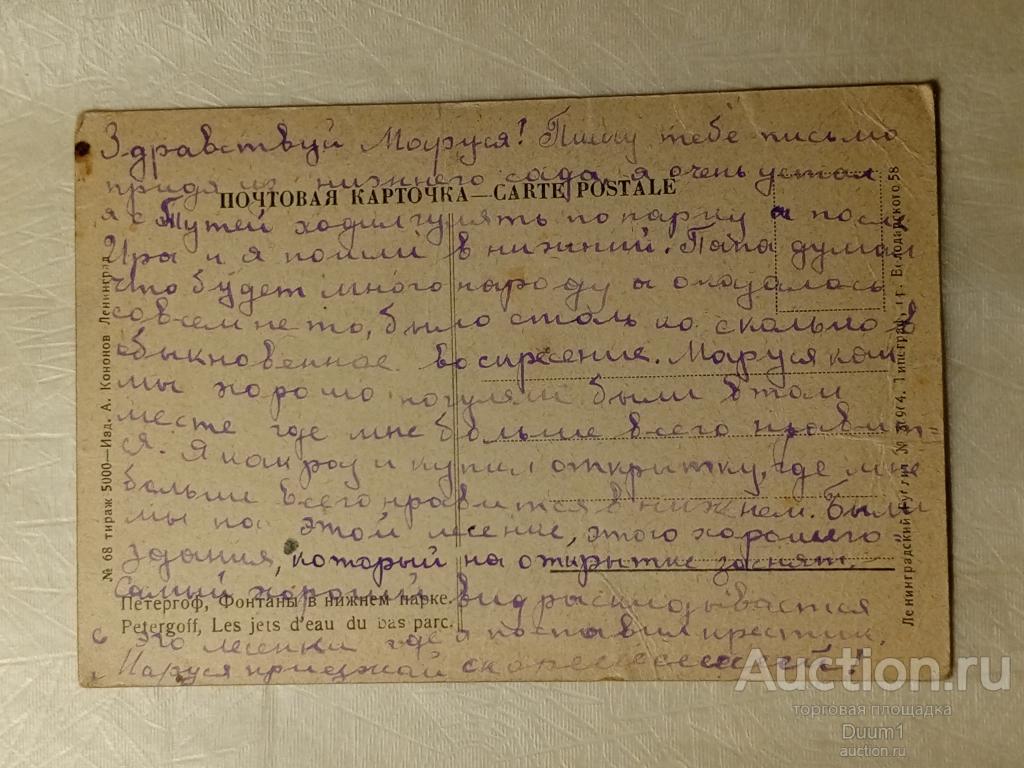 Здравствуй Маруся! Пишу тебе письмо
придя из нижнего сада, я очень устал
ПОЧТОВАЯ КАРТОЧКА—CARTE POSTALE
я с Тутей ходил гулять по парку а посл
Ира и я пошли в нижний. Папа думал
что будет много народу а оказалось
совсем не то, было столько сколько в
обыкновенное воскресение. Маруся как
мы хорошо погуляли были в том
месте где мне больше всего нравит-
ся. Я как раз и купил открытку, где мне
больше всего нравится в нижнем. Были
мы на этой лесенке, этого хорошего
здания, который на открытке заснят.
Самый хороший вид раскидывается
Петергоф, Фонтаны в нижнем парке.
Petergoff, Les jets d'eau du bas parc.
с это лесенки где я поставил крестик.
Маруся приезжай скореееееееей!
№ 68 тираж 5000—Изд. А. Кононов Ленинград
Ленинградский Гублит № Типограф. Володарского 58
Auction.ru
торговая площадка
Duum1
auction.ru